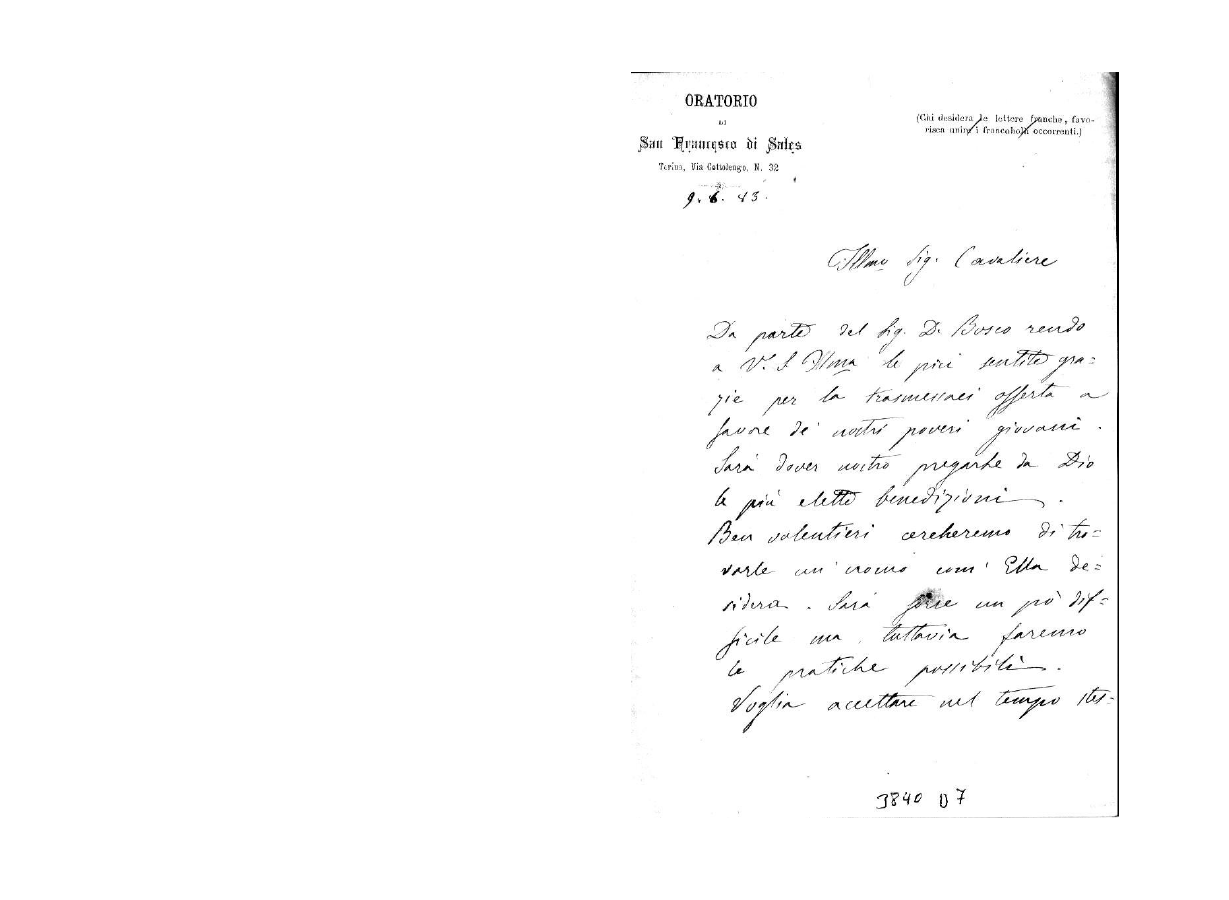 ORATORIO
DI
San Francesco di Sales
Torino, Via Cottolengo, N. 32
(Chi desidera le lettere franche, favo-
risca unire i francobolli occorrenti.)
9. 6. 83.
Illmo Sig. Cavaliere
Da parte del Sig. D. Bosco rendo
a V. S Illma le più sentite gra=
zie per la trasmessaci offerta a
favore de' nostri poveri giovani.
Sarà dover nostro pregarle da Dio
le più elette benedizioni.
Ben volentieri cercheremo di tro=
varle un' uomo com' Ella de=
sidera. Sarà forse un pò dif=
ficile ma tuttavia faremo
le pratiche possibili.
Voglia accettare nel tempo stes=
3840 D7